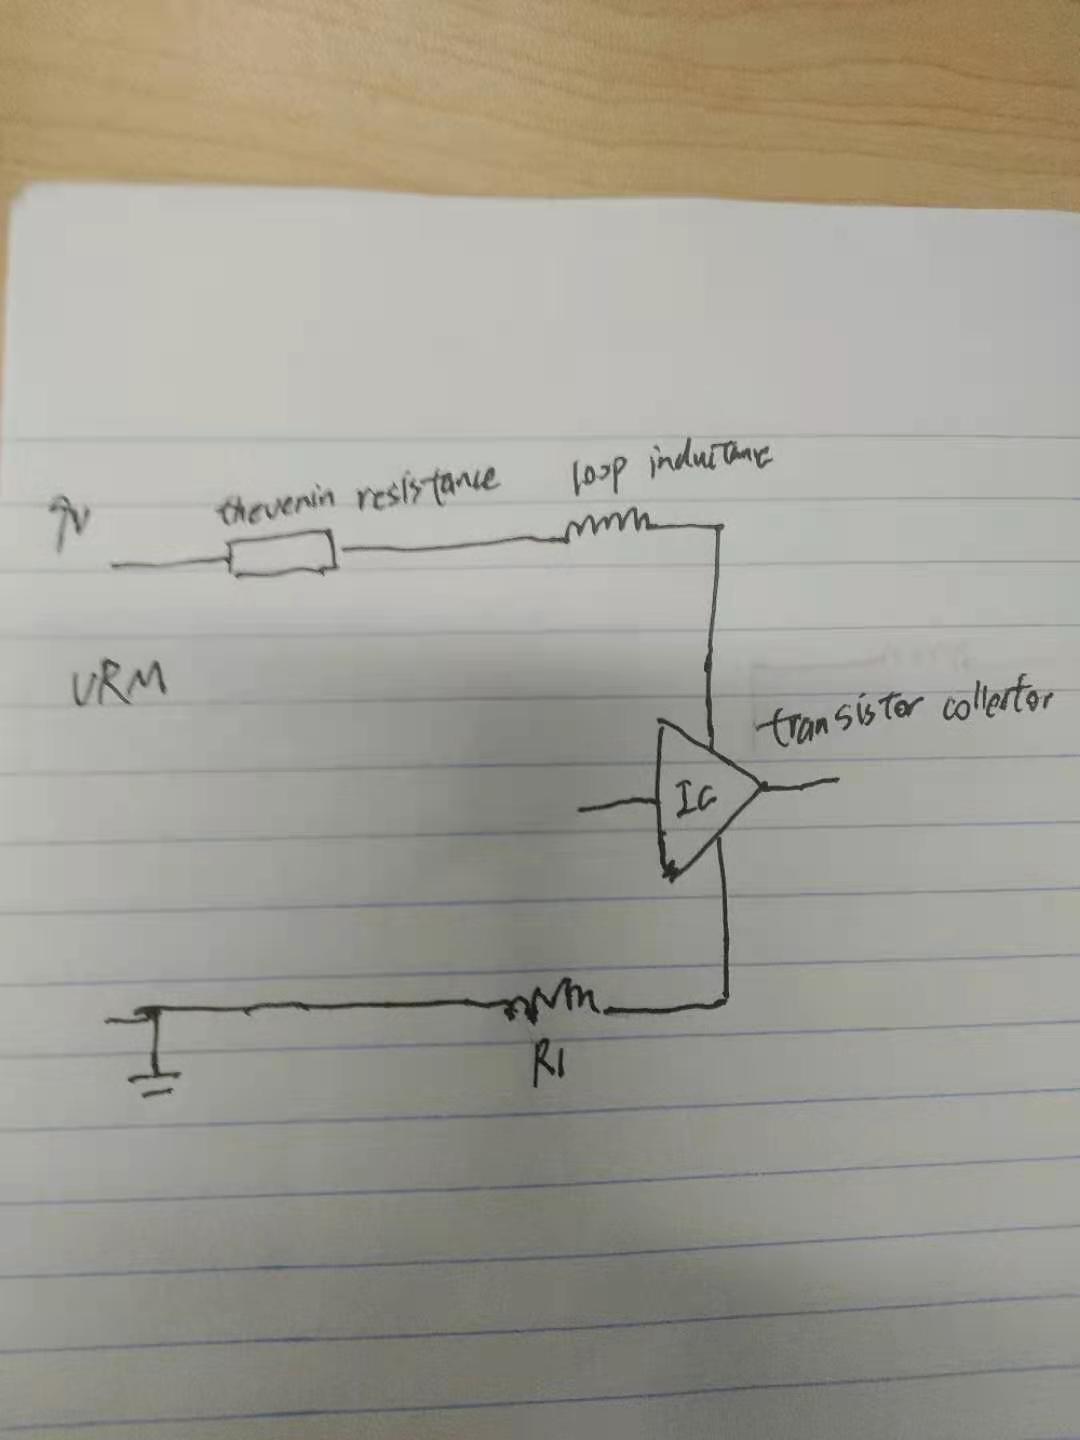 thevenin resistance
loop inductance
VRM
transistor collector
IC
R1